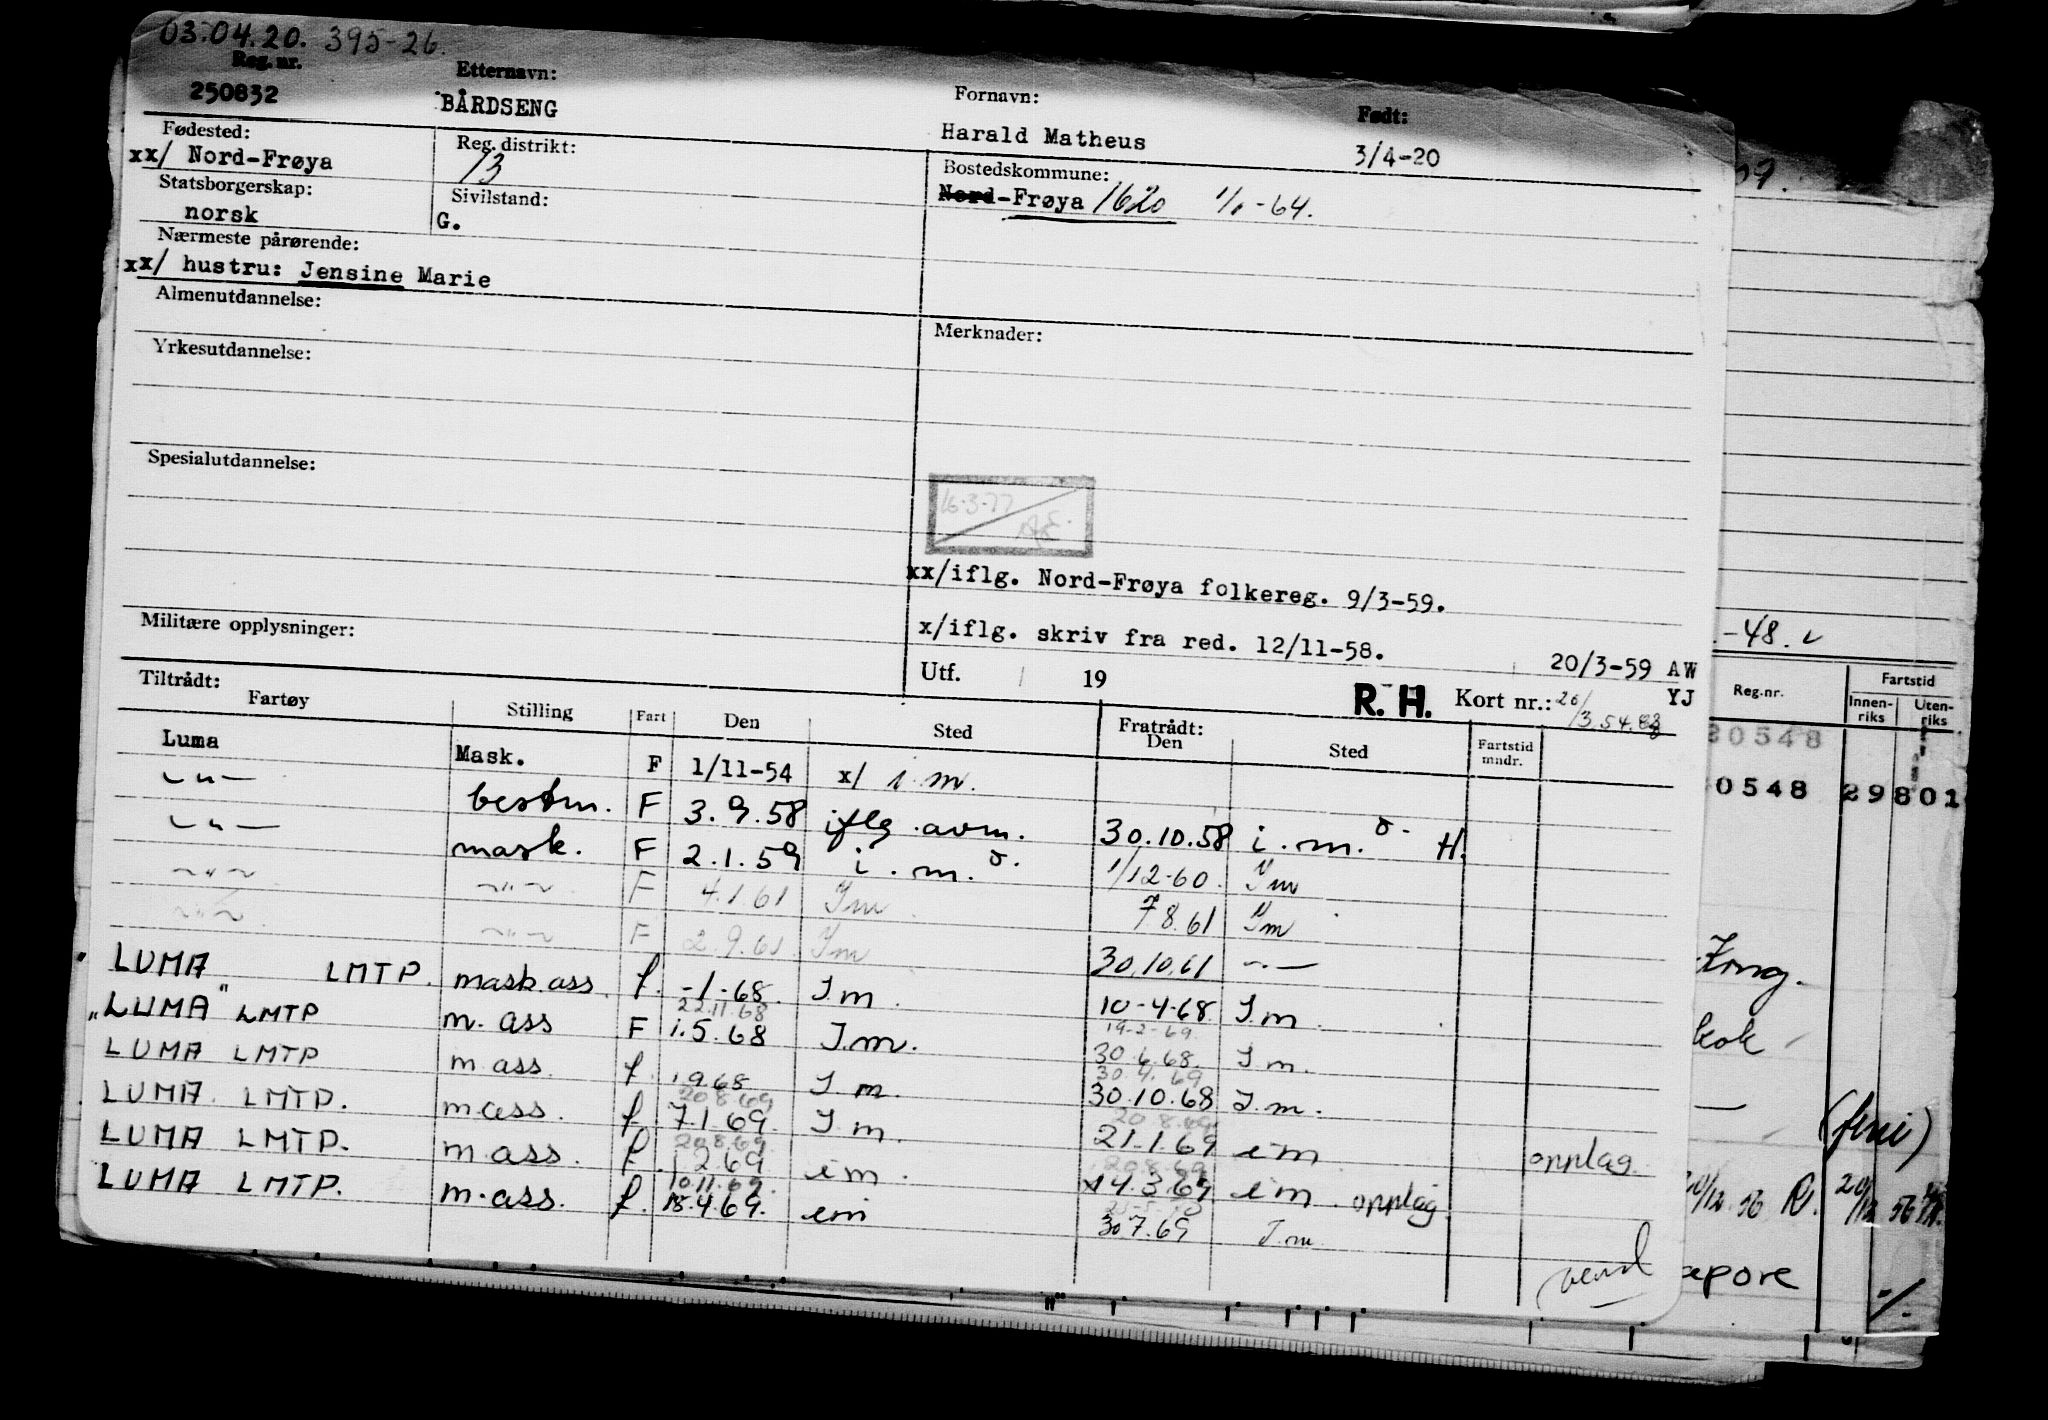 03.04.20. 395-26.
Reg. nr. Etternavn: Fornavn: Født:
250832 BÅRDSENG Harald Matheus 3/4-20
Fødested: Reg. distrikt: Bostedskommune:
xx/ Nord-Frøya 13 Nord-Frøya 1620 1/1-64.
Statsborgerskap: Sivilstand:
norsk G.
Nærmeste pårørende:
xx/ hustru: Jensine Marie
Almenutdannelse: Merknader:
Yrkesutdannelse:
Spesialutdannelse:
16-3-77
xx/iflg. Nord-Frøya folkereg. 9/3-59.
Militære opplysninger: x/iflg. skriv fra red. 12/11-58.
20/3-59 AW
Utf. 19 R. H. Kort nr.: YJ
Tiltrådt: Fratrådt:
Fartøy Stilling Fart Den Sted Den Sted Fartstid mndr.
Luma Mask. F 1/11-54 x/ i.m.
-"- bestm. F 3.9.58 iflg. avm. 30.10.58 i.m. H.
-"- mask. F 2.1.59 i.m. 1/12-60. Im
-"- -"- F 4.1.61 Im 7.8.61 Im
-"- -"- F 2.9.61 Im 30.10.61 -"-
LUMA LMTP. mask.ass. f. -1-68. I m. 10-4-68 I.m.
22.11.68 19-2-69
"LUMA" LMTP m. ass F 1.5.68 I.m. 30.6.68. I m.
30.4.69
LUMA LMTP m ass. f. 1.9.68 I m. 30.10.68 I.m.
20.8.69 20.8.69
LUMA. LMTP. m.ass. f. 7.1.69. I m. 21.1.69 i m. opplag.
20.8.69. 20.8.69
LUMA LMTP. m.ass. f. 1.2.69 i m. 14.3.69. i m. opplag.
10.11.69.
LUMA LMTP. m.ass. f. 15.4.69. im 30.7.69 I.m.
vend
.-48.
Reg.nr. Fartstid
Innenriks Utenriks
30548
0548 29801
(feri)
20/12 56
apore